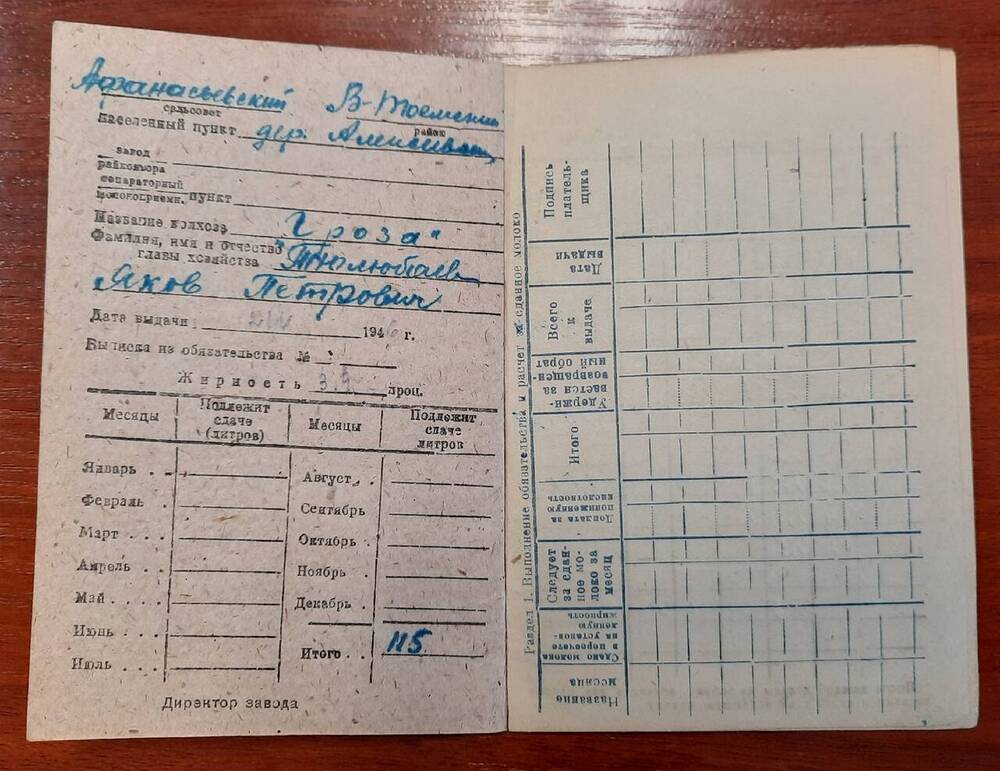 Афанасьевский В-Тоемский
сельсовет район
Населенный пункт дер.
завод
райконтора
сепараторный
молокоприемн. пункт
Название колхоза "Гроза"
Фамилия, имя и отчество
главы хозяйства Тюлюбаев
Яков Петрович
Дата выдачи 1946 г.
Выписка из обязательства №
Жирность 3,9 проц.
Месяцы Подлежит сдаче (литров) Месяцы Подлежит сдаче литров
Январь . . Август .
Февраль . Сентябрь
Март . . . Октябрь .
Апрель . . Ноябрь .
Май . . . . Декабрь .
Июнь . . . Итого . . 115
Июль . . .
Директор завода
Раздел 1. Выполнение обязательства и расчет за сданное молоко
Название месяца
Сдано молока в пересчете на установленную жирность
Следует за сданное молоко за месяц
Доплата за пониженную кислотность
Итого
Удерживается за возвращенный обрат
Всего к выдаче
Дата выдачи
Подпись плательщика